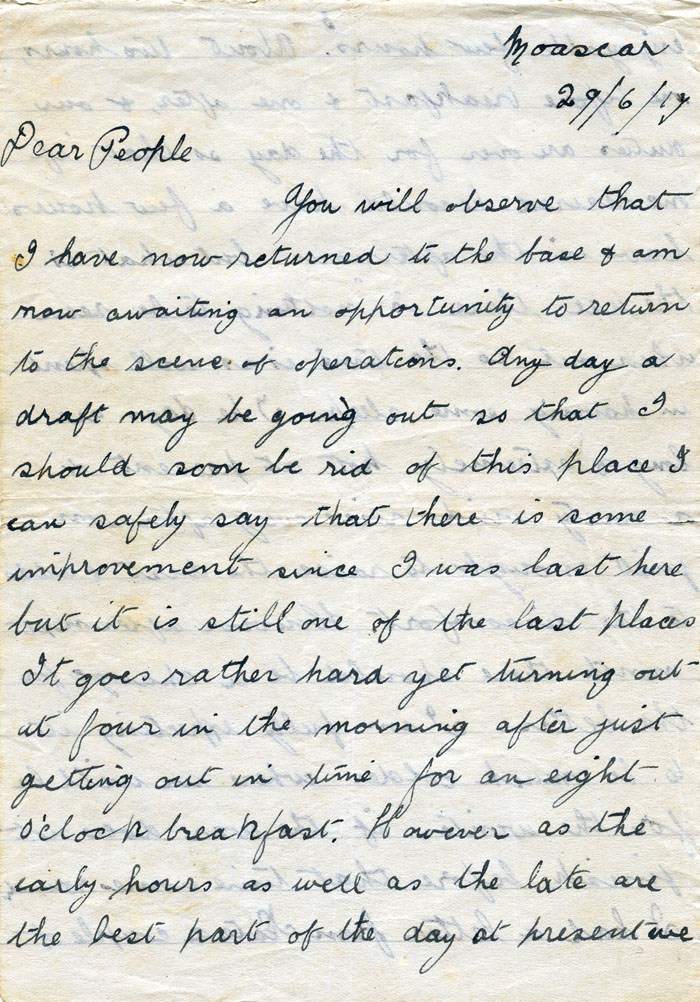 Moascar
29/6/17
Dear People
You will observe that
I have now returned to the base & am
now awaiting an opportunity to return
to the scene of operations. Any day a
draft may be going out so that I
should soon be rid of this place I
can safely say that there is some
improvement since I was last here
but it is still one of the last places
It goes rather hard yet turning out
at four in the morning after just
getting out in time for an eight
o'clock breakfast. However as the
early hours as well as the late are
the best part of the day at present we